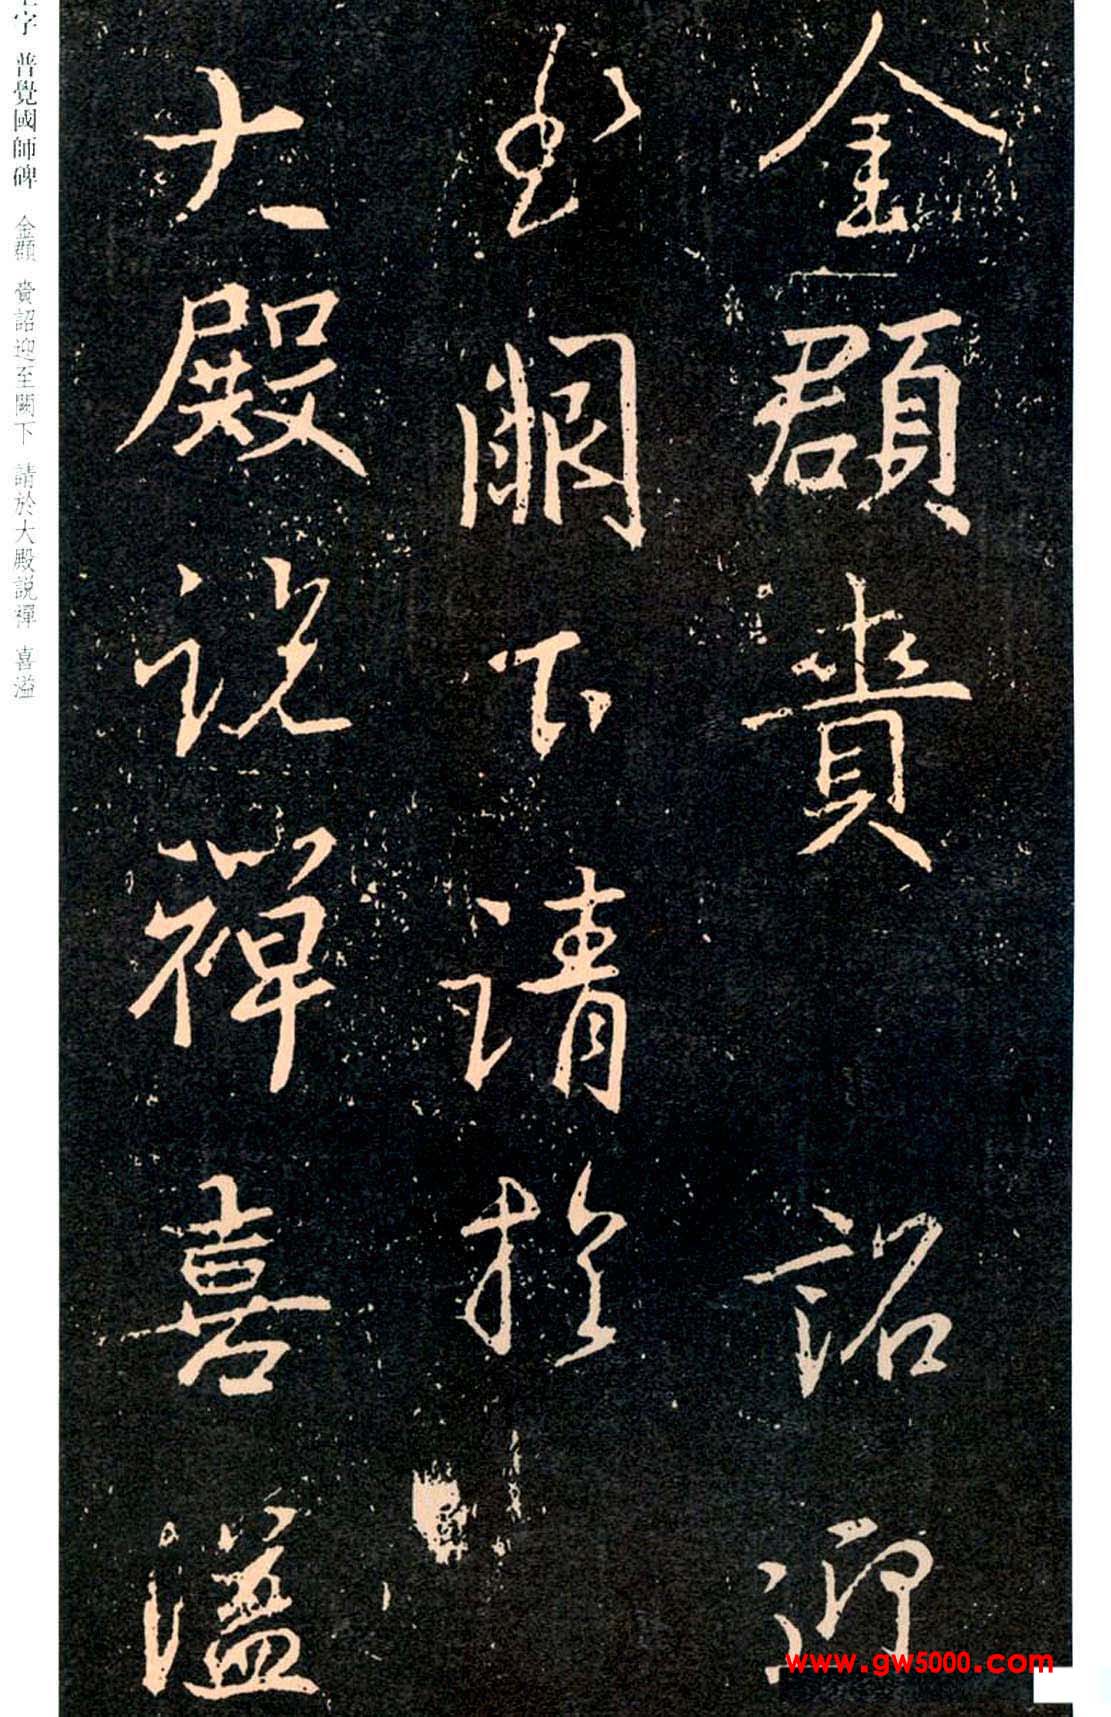 金顥賫詔迎
至闕下請於
大殿説禪喜溢
字 普覺國師碑 金顥 賫詔迎至闕下 請於大殿説禪 喜溢
www.gw5000.com